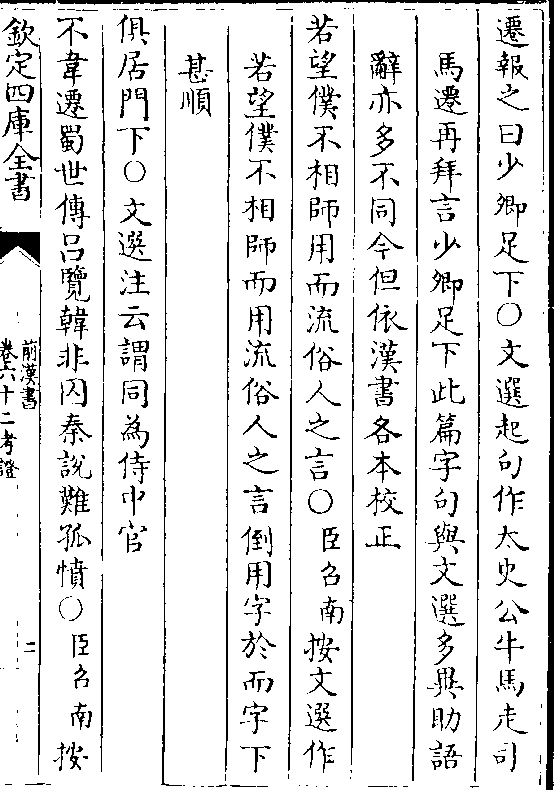 遷報之曰少卿足下○文選起句作太史公牛馬走司
馬遷再拜言少卿足下此篇字句與文選多異助語
辭亦多不同今但依漢書各本校正
若望僕不相師用而流俗人之言○臣召南按文選作
若望僕不相師而用流俗人之言倒用字於而字下
甚順
俱居門下○文選注云謂同為侍中官
不韋遷蜀世傳呂覽韓非囚秦說難孤憤○臣召南按
欽定四庫全書
前漢書
卷六十二考證
二